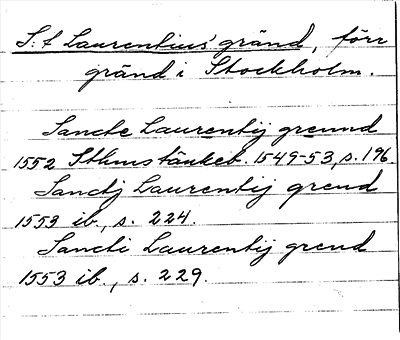 S:t Laurentius' gränd, förr
gränd i Stockholm.
Sancte Laurentij grennd
1552 Sthms tänkeb. 1549-53, s. 196.
Sanctj Laurentij grend
1553 ib., s. 224.
Sancti Laurentij grend
1553 ib., s. 229.